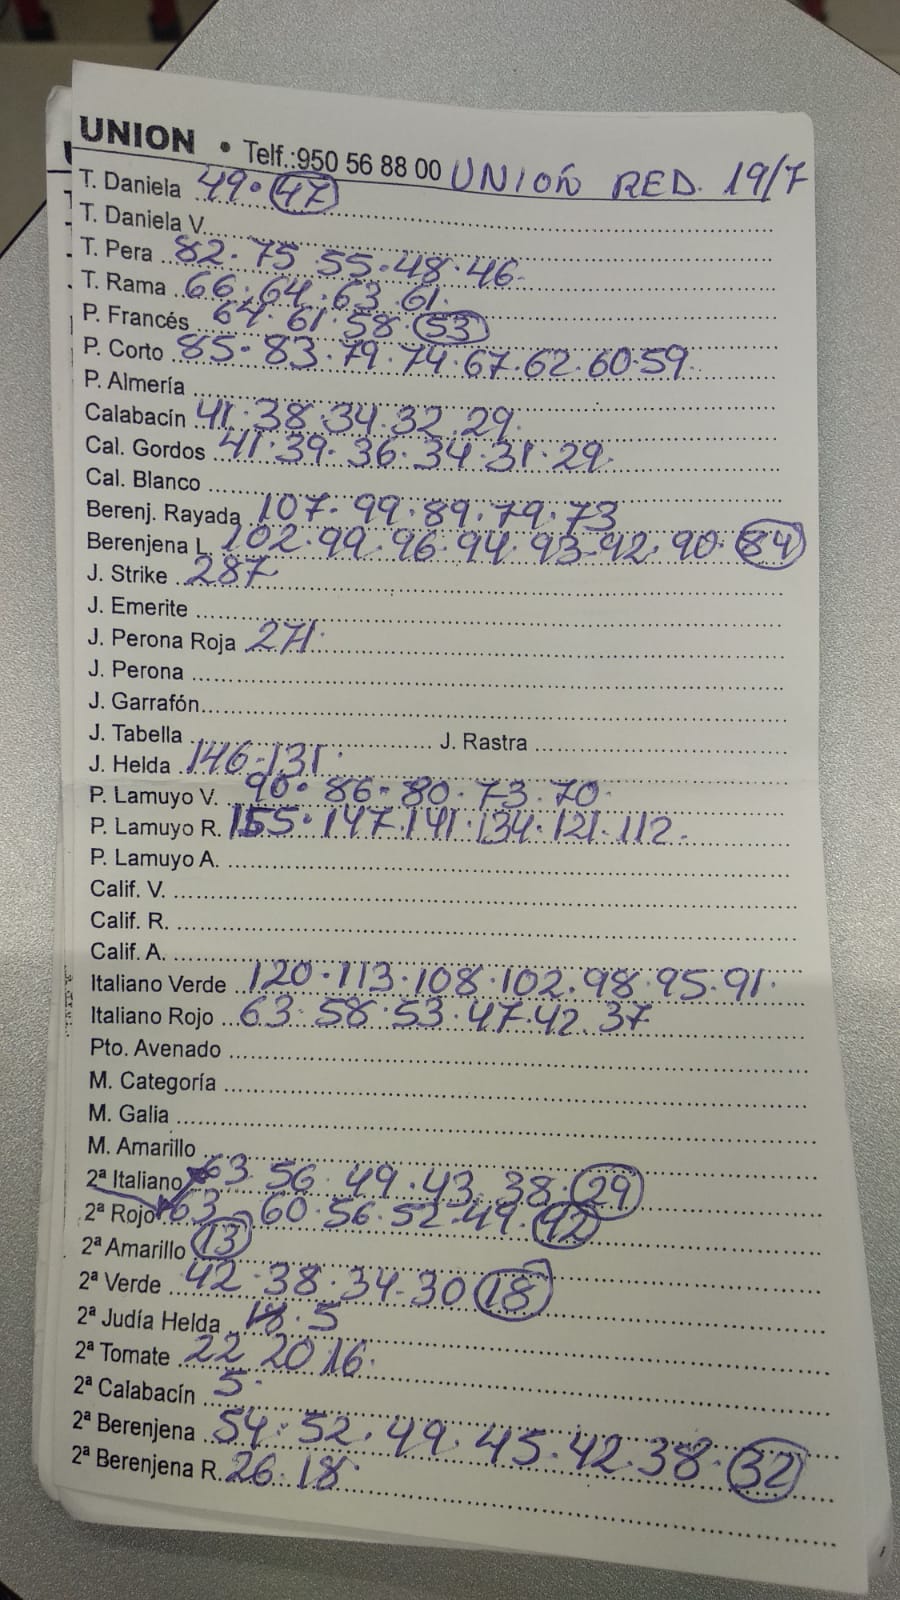 UNION • Telf.:950 56 88 00 UNION RED. 19/7
T. Daniela 49.47
T. Daniela V.
T. Pera 82.75 55.48.46.
T. Rama 66.64.63.61.
P. Francés 64.61.58.53
P. Corto 85.83.79.74.67.62.60.59.
P. Almería
Calabacín 41.38.34.32.29.
Cal. Gordos 41.39.36.34.31.29.
Cal. Blanco
Berenj. Rayada 107.99.89.79.73
Berenjena L. 102.99.96.94.93-92.90.84
J. Strike 287
J. Emerite
J. Perona Roja 271.
J. Perona
J. Garrafón
J. Tabella J. Rastra
J. Helda 146-131.
P. Lamuyo V. 90.86.80.73.70.
P. Lamuyo R. 155.147.141.134.121.112.
P. Lamuyo A.
Calif. V.
Calif. R.
Calif. A.
Italiano Verde 120.113.108.102.98.95.91.
Italiano Rojo 63.58.53.47.42.37
Pto. Avenado
M. Categoría
M. Galia
M. Amarillo
2ª Italiano 63.56.49.43.38.29
2ª Rojo 63.60.56.52.49.42
2ª Amarillo 13
2ª Verde 42.38.34-30 18
2ª Judía Helda 5
2ª Tomate 22 20 16.
2ª Calabacín 5.
2ª Berenjena 54.52.49.45.42.38.32
2ª Berenjena R. 26.18.